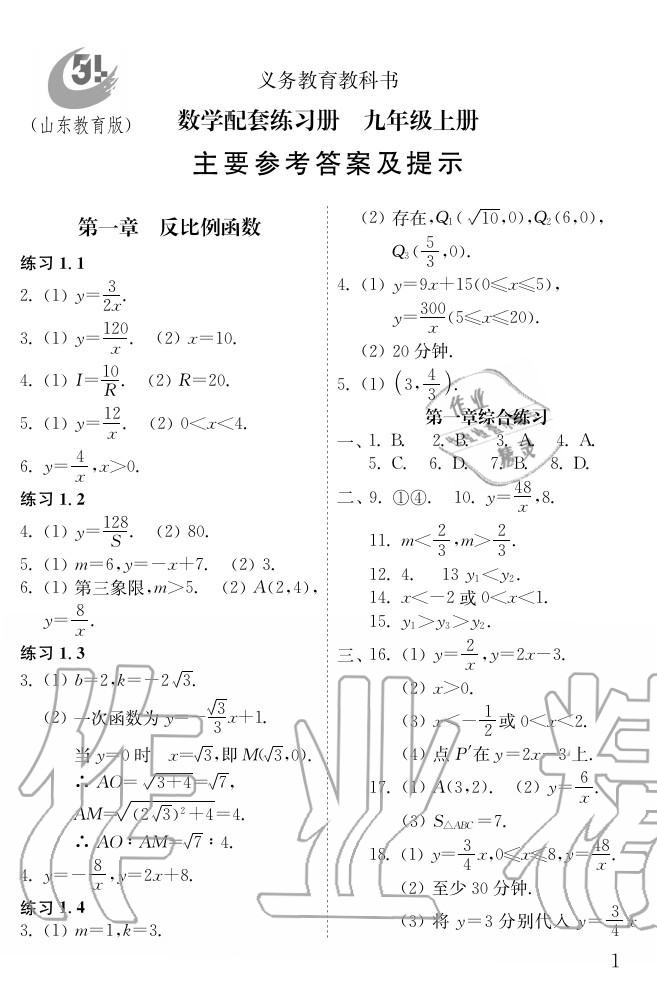 5·4
(山东教育版)
义务教育教科书
数学配套练习册 九年级上册
主要参考答案及提示
第一章 反比例函数
练习 1.1
2. (1) y=3/2x.
3. (1) y=120/x. (2) x=10.
4. (1) I=10/R. (2) R=20.
5. (1) y=12/x. (2) 0<x<4.
6. y=4/x,x>0.
练习 1.2
4. (1) y=128/S. (2) 80.
5. (1) m=6,y=-x+7. (2) 3.
6. (1) 第三象限,m>5. (2) A(2,4),
y=8/x.
练习 1.3
3. (1) b=2,k=-2√3.
(2) 一次函数为 y=-√3/3x+1.
当 y=0 时 x=√3,即 M(√3,0).
∴ AO=√3+4=√7,
AM=√(2√3)²+4=4.
∴ AO∶AM=√7∶4.
4. y=-8/x,y=2x+8.
练习 1.4
3. (1) m=1,k=3.
(2) 存在,Q₁(√10,0),Q₂(6,0),
Q₃(5/3,0).
4. (1) y=9x+15(0≤x≤5),
y=300/x(5≤x≤20).
(2) 20 分钟.
5. (1) (3,4/3).
第一章综合练习
一、1. B. 2. B. 3. A. 4. A.
5. C. 6. D. 7. B. 8. D.
二、9. ①④. 10. y=48/x,8.
11. m<2/3,m>2/3.
12. 4. 13 y₁<y₂.
14. x<-2 或 0<x<1.
15. y₁>y₃>y₂.
三、16. (1) y=2/x,y=2x-3.
(2) x>0.
(3) x<-1/2或 0<x<2.
(4) 点 P′在 y=2x-3上.
17. (1) A(3,2). (2) y=6/x.
(3) S△ABC=7.
18. (1) y=3/4x,0≤x≤8,y=48/x.
(2) 至少 30 分钟.
(3) 将 y=3 分别代入 y=3/4x
1
作业精
作业
精灵